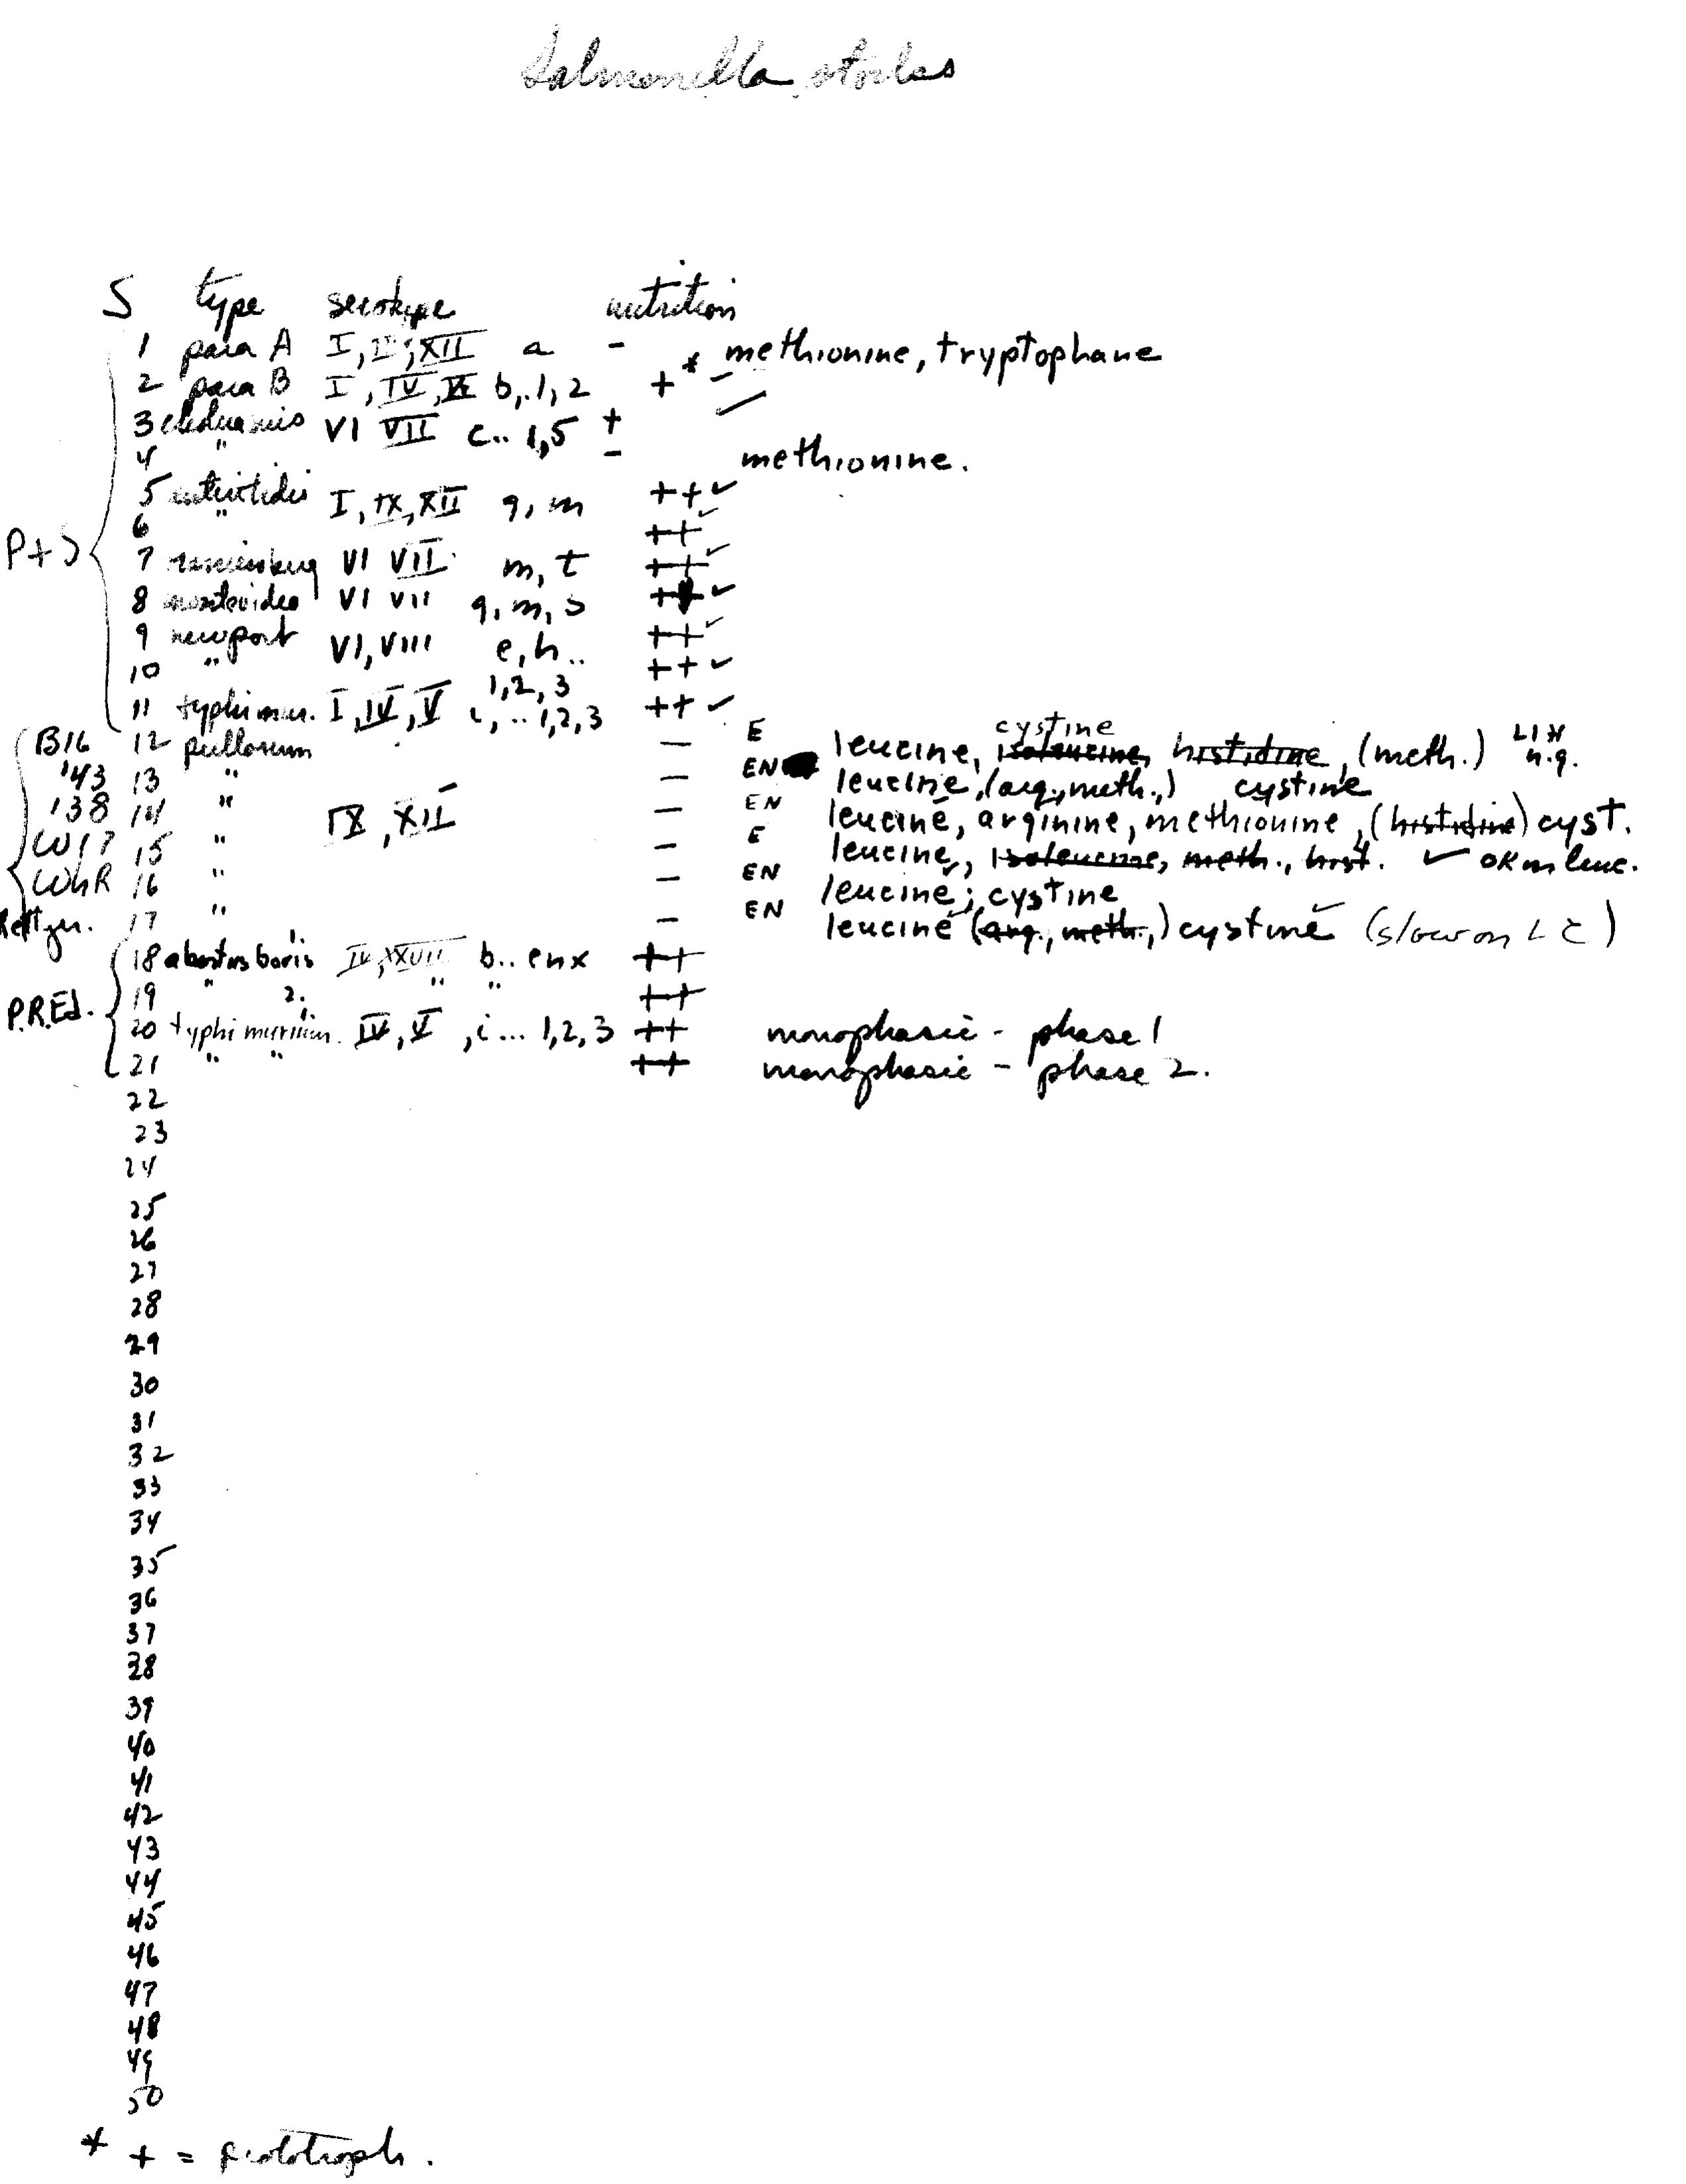 Salmonella stocks
S type serotype nutrition
1 para A I, II, XII a - methionine, tryptophane
2 para B I, IV, b, .1, 2 +* -
3 VI VII c.. 1,5 + ✓
4 " - methionine.
5 enteritidis I, IX, XII g, m ++ ✓
6 " ++ ✓
P + S
7 VI VII m, t ++ ✓
8 montevideo VI VII g, m, s ++ ✓
9 newport VI, VIII e, h.. ++ ✓
10 " 1,2,3 ++ ✓
11 typhi mur. I, IV, V i, .. 1,2,3 ++ ✓
B16 12 pullorum - E leucine, isoleucine, cystine histidine, (meth.) LIH n.g.
143 13 " - EN leucine, (arg., meth.,) cystine
138 14 " IX, XII - EN leucine, arginine, methionine, (histidine) cyst.
CW17 15 " - E leucine, isoleucine, meth., hist. ✓ OK on leuc.
CWhR 16 " - EN leucine; cystine
Rettger. 17 " - EN leucine (arg., meth.,) cystine (slow on L C)
18 abortus bovis 1. IV, XXVII b.. enx ++
19 " 2. " " ++
P.R.Ed.
20 typhi murium 1. IV, V, i... 1,2,3 ++ monophasic - phase 1
21 " " ++ monophasic - phase 2.
22
23
24
25
26
27
28
29
30
31
32
33
34
35
36
37
38
39
40
41
42
43
44
45
46
47
48
49
50
* + = prototroph.